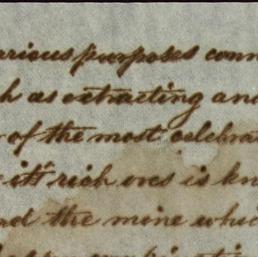 various purposes conn
h as extracting and
of the most celebrat
it's rich ores is kn
ad the mine whic